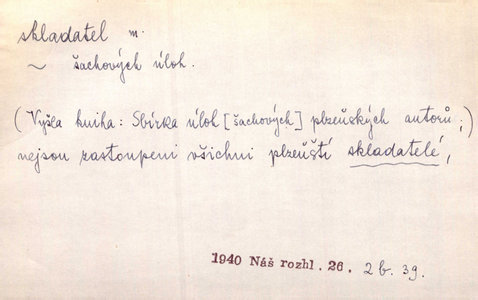 skladatel m.
~ šachových úloh.
(Vyšla kniha: Sbírka úloh [šachových] plzeňských autorů;)
nejsou zastoupeni všichni plzeňští skladatelé,
1940 Náš rozhl. 26. 2b. 39.